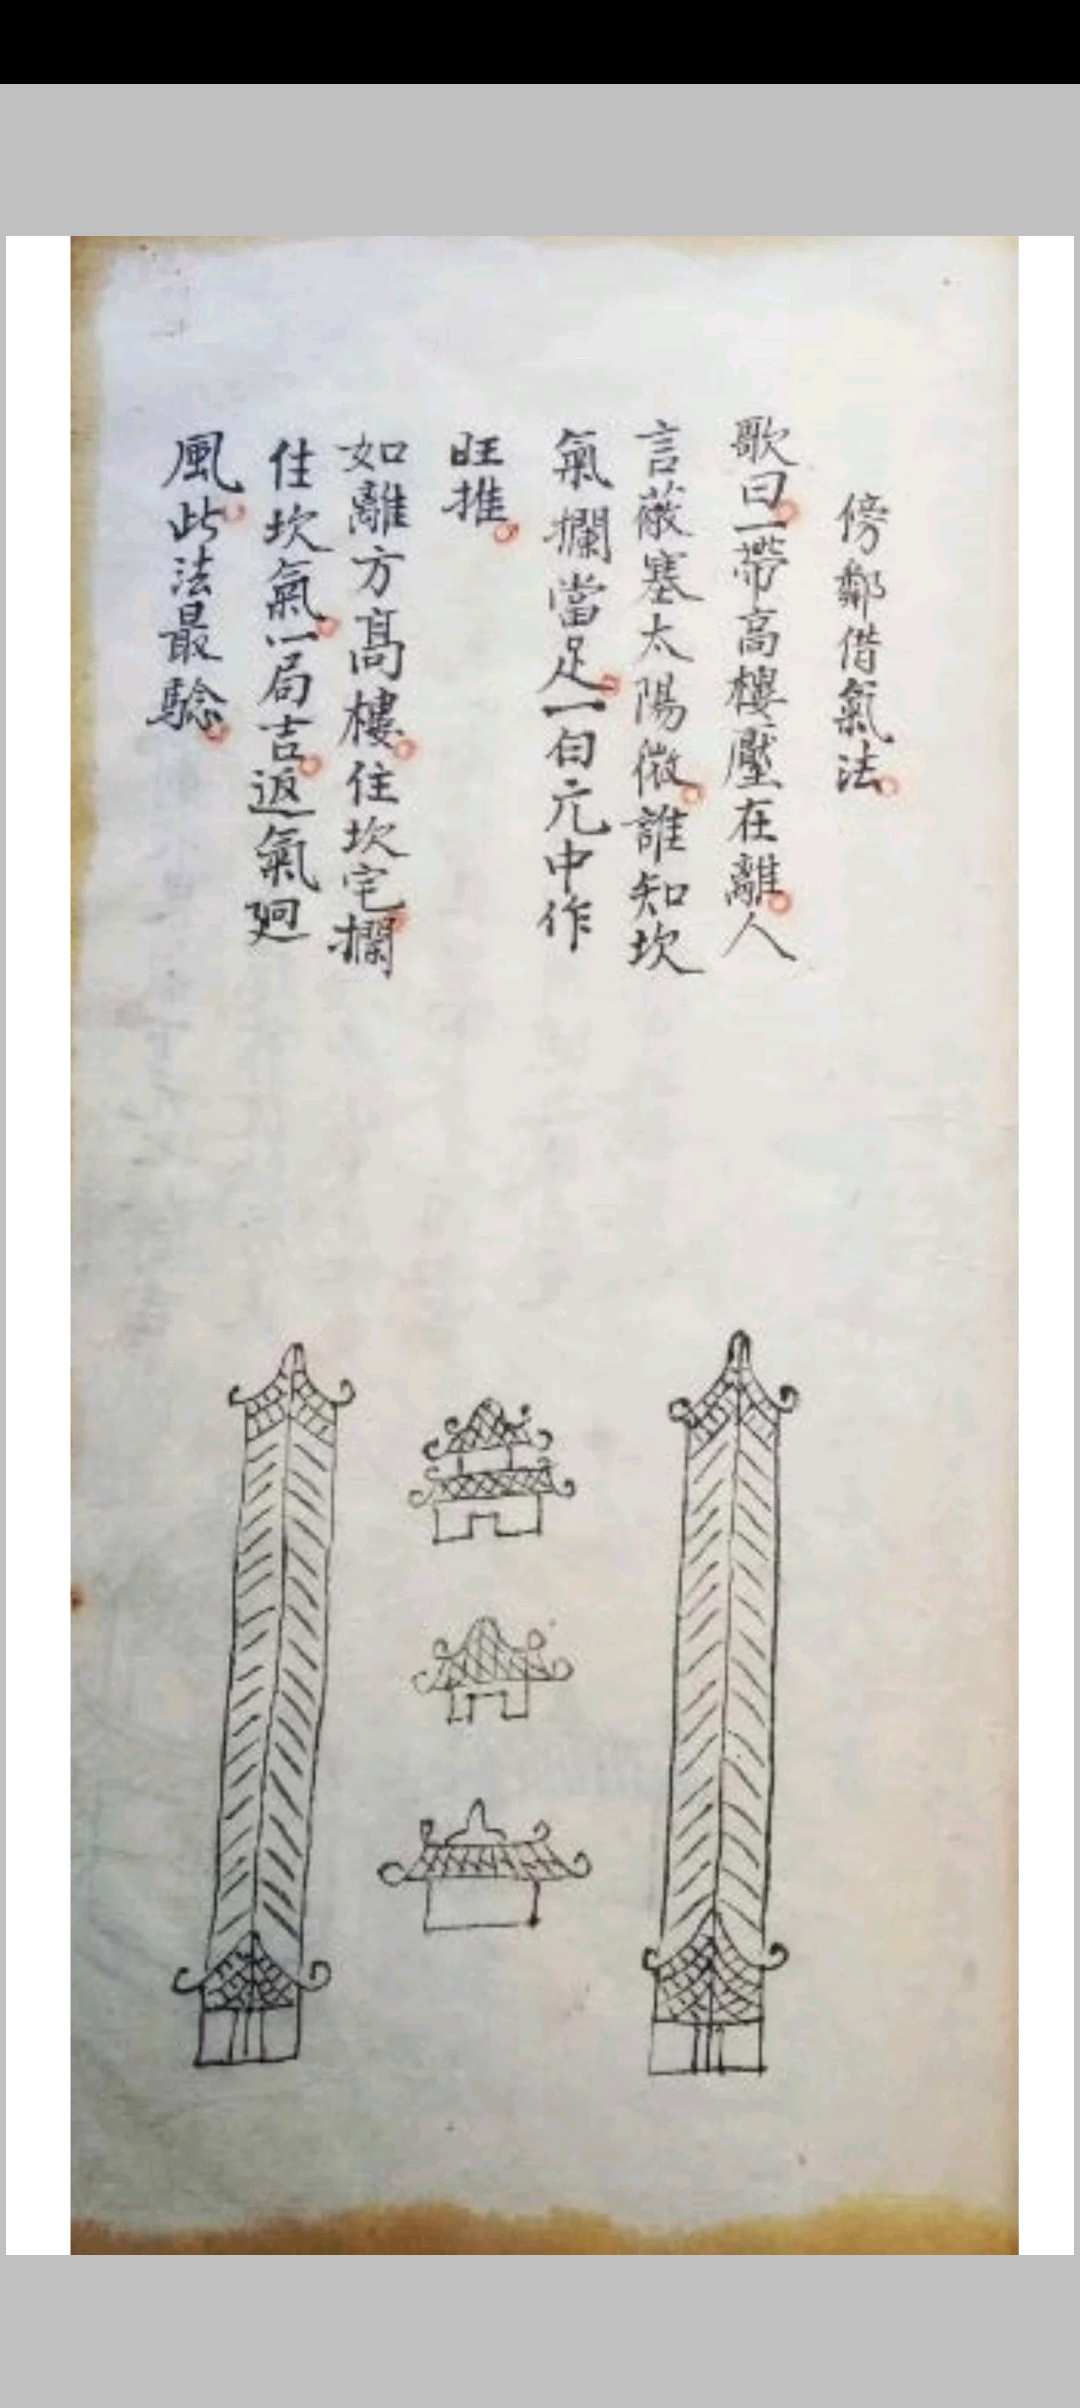 傍鄰借氣法。
歌曰。一帶高樓壓在離。人
言蔽塞太陽微。誰知坎
氣攔當足。一白元中作
旺推。
如離方髙樓。住坎宅。攔
住坎氣。一局吉。返氣廻
風。此法最驗。